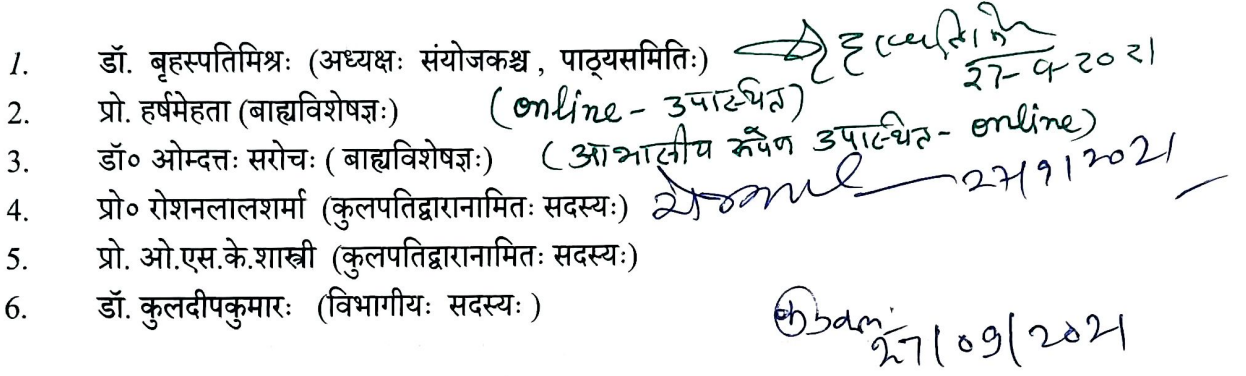 1. डॉ. बृहस्पतिमिश्रः (अध्यक्षः संयोजकश्च , पाठ्यसमितिः) 27-9-2021
2. प्रो. हर्षमेहता (बाह्यविशेषज्ञः) (online - उपास्थित)
3. डॉ० ओम्दत्तः सरोचः ( बाह्यविशेषज्ञः) (आभासीय रूपेण उपास्थित - online)
4. प्रो० रोशनलालशर्मा (कुलपतिद्वारानामितः सदस्यः) 27/9/2021
5. प्रो. ओ.एस.के.शास्त्री (कुलपतिद्वारानामितः सदस्यः)
6. डॉ. कुलदीपकुमारः (विभागीयः सदस्यः )
27/09/2021